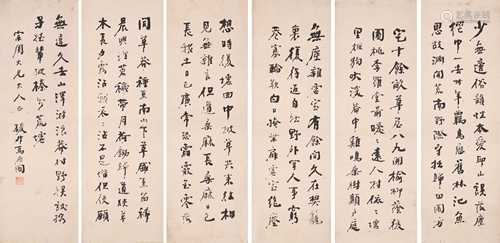 少無適俗韻性本愛邱山誤落塵
網中一去卅年羈鳥戀舊林池魚
思故淵開荒南野際守拙歸田園方
宅十餘畝草屋八九間榆柳蔭後
園桃李羅堂前曖曖遠人村依依墟
里煙狗吠深巷中雞鳴桑樹巔戶庭
無塵雜虛室有餘閒久在樊籠
裏復得返自然野外罕人事窮
巷寡輪鞅白日掩荊扉虛室絕塵
想時復墟曲中披草共來往相
見無雜言但道桑麻長桑麻日已
長我土日已廣常恐霜霰至零落
同草莽種豆南山下草盛豆苗稀
晨興理荒穢帶月荷鋤歸道狹草
木長夕露沾我衣衣沾不足惜但使願
無違久去山澤游浪莽林野娛試攜
子姪輩披榛步荒墟
宗周大兄大人正